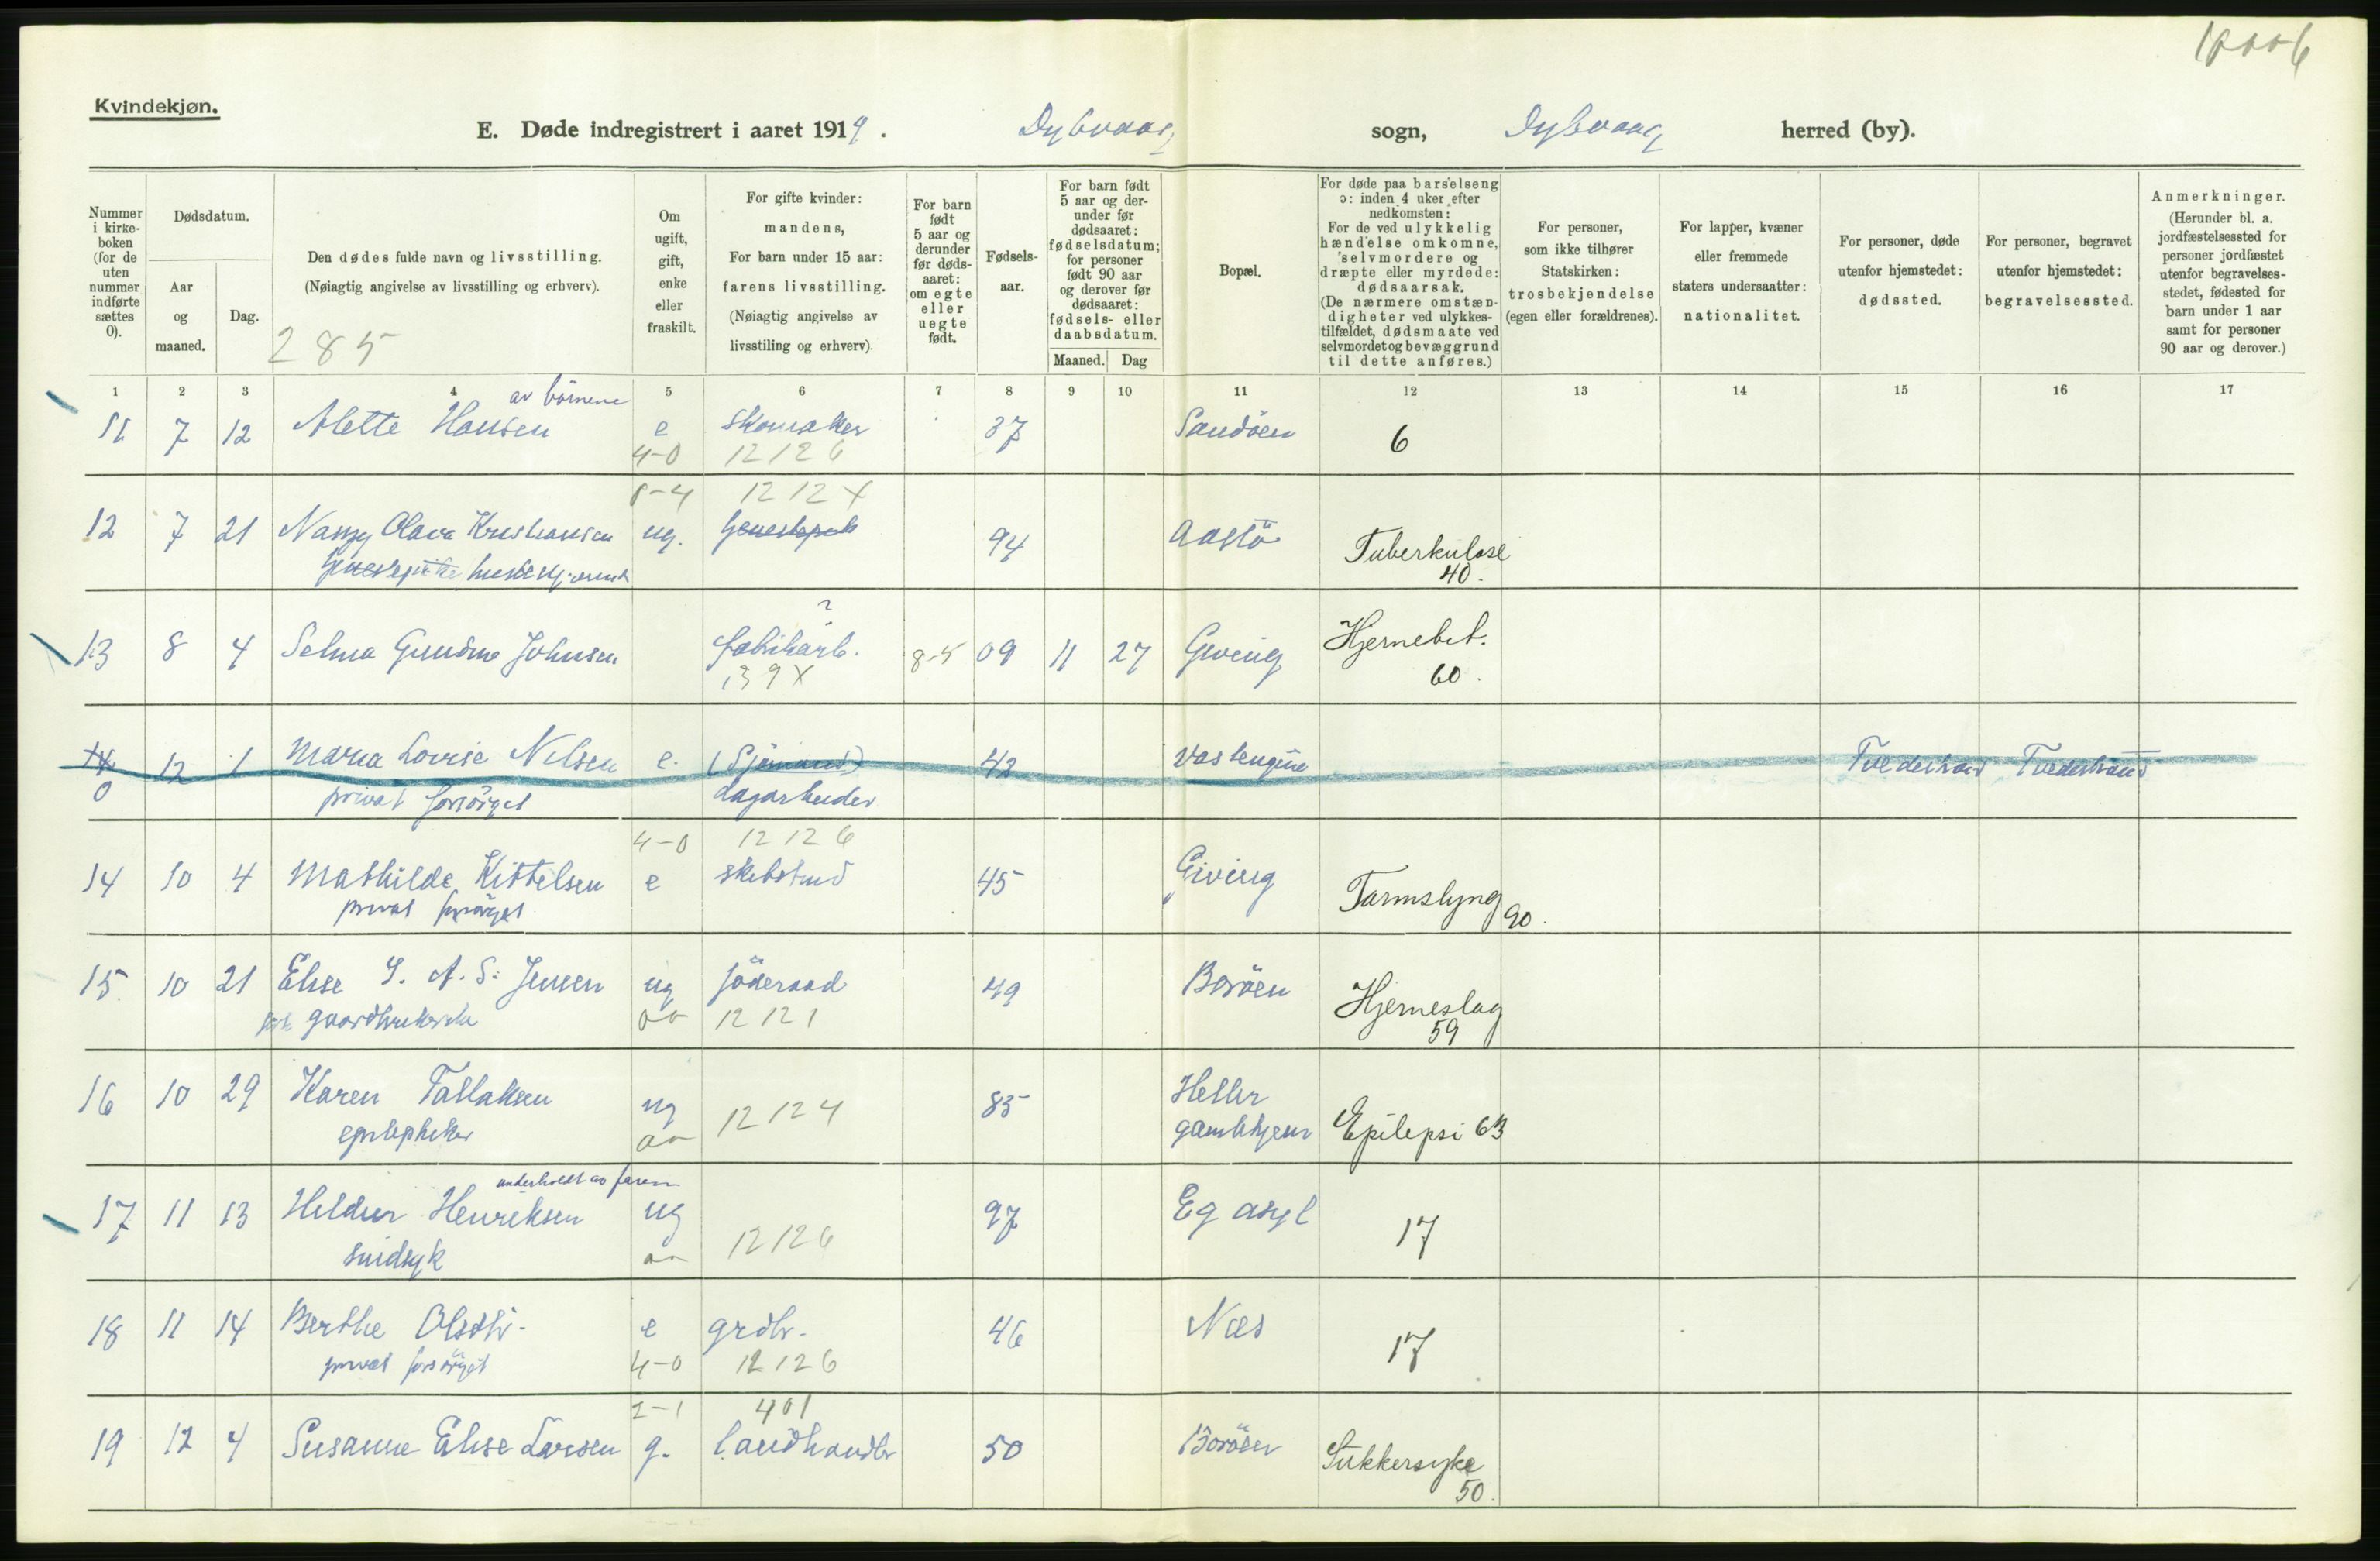 Kvindekjøn.
E. Døde indregistrert i aaret 1919. Dybvaag sogn, Dybvaag herred (by).
Nummer i kirkeboken (for de uten nummer indførte sættes 0).
Dødsdatum.
Aar og maaned.
Dag.
Den dødes fulde navn og livsstilling.
(Nøiagtig angivelse av livsstilling og erhverv).
285
Om ugift, gift, enke eller fraskilt.
For gifte kvinder: mandens,
For barn under 15 aar: farens livsstilling.
(Nøiagtig angivelse av livsstiling og erhverv).
For barn født 5 aar og derunder før dødsaaret: om egte eller uegte født.
Fødselsaar.
For barn født 5 aar og derunder før dødsaaret: fødselsdatum; for personer født 90 aar og derover før dødsaaret: fødsels- eller daabsdatum.
Maaned. Dag
Bopæl.
For døde paa barselseng ɔ: inden 4 uker efter nedkomsten:
For de ved ulykkelig hændelse omkomne, selvmordere og dræpte eller myrdede: dødsaarsak.
(De nærmere omstændigheter ved ulykkestilfældet, dødsmaate ved selvmordet og bevæggrund til dette anføres.)
For personer, som ikke tilhører Statskirken: trosbekjendelse (egen eller forældrenes).
For lapper, kvæner eller fremmede staters undersaatter: nationalitet.
For personer, døde utenfor hjemstedet: dødssted.
For personer, begravet utenfor hjemstedet: begravelsessted.
Anmerkninger.
(Herunder bl. a. jordfæstelsessted for personer jordfæstet utenfor begravelsesstedet, fødested for barn under 1 aar samt for personer 90 aar og derover.)
1 2 3 4 5 6 7 8 9 10 11 12 13 14 15 16 17
av börnene
11 7 12 Alette Hansen e skomaker 37 Sandöen 6
4-0 12126
1212X
12 7 21 Nanny Olava Kristiansen ug. 94 Aastö Tuberkulose
40.
?
13 8 4 Selma Gundine Johnsen fabrikarb. 8-5 09 11 27 Geving Hjernebet.
139X 60.
14 12 1 Maria Lovise Nilsen e. (Sjömand) 43 Tvedestrand Tvedestrand
0 privat forsörget Lagarbeider
4-0 12126
14 10 4 Mathilde Kittelsen e skibstmd 45 Giving Tarmslyng 90.
privat forsörget
15. 10 21 Elise S. A. S. Jensen ug 49 Boröen Hjerneslag
gaardbrukerske 12121 59
16 10 29 Karen Tallaksen ug 12124 85 Heller Epilepsi 63
epileptiker gamlehjem
underholdt av faren
17 11 13 Hildur Henriksen ug 12126 97 Eg asyl 17
sindsyk
18 11 14 Berthe e grdbr. 46 Næs 17
privat forsörget 4-0 12126
2-1 401
19 12 4 Susanne Elise Larsen g. landhandler 50 Boröen Sukkersyke
50.